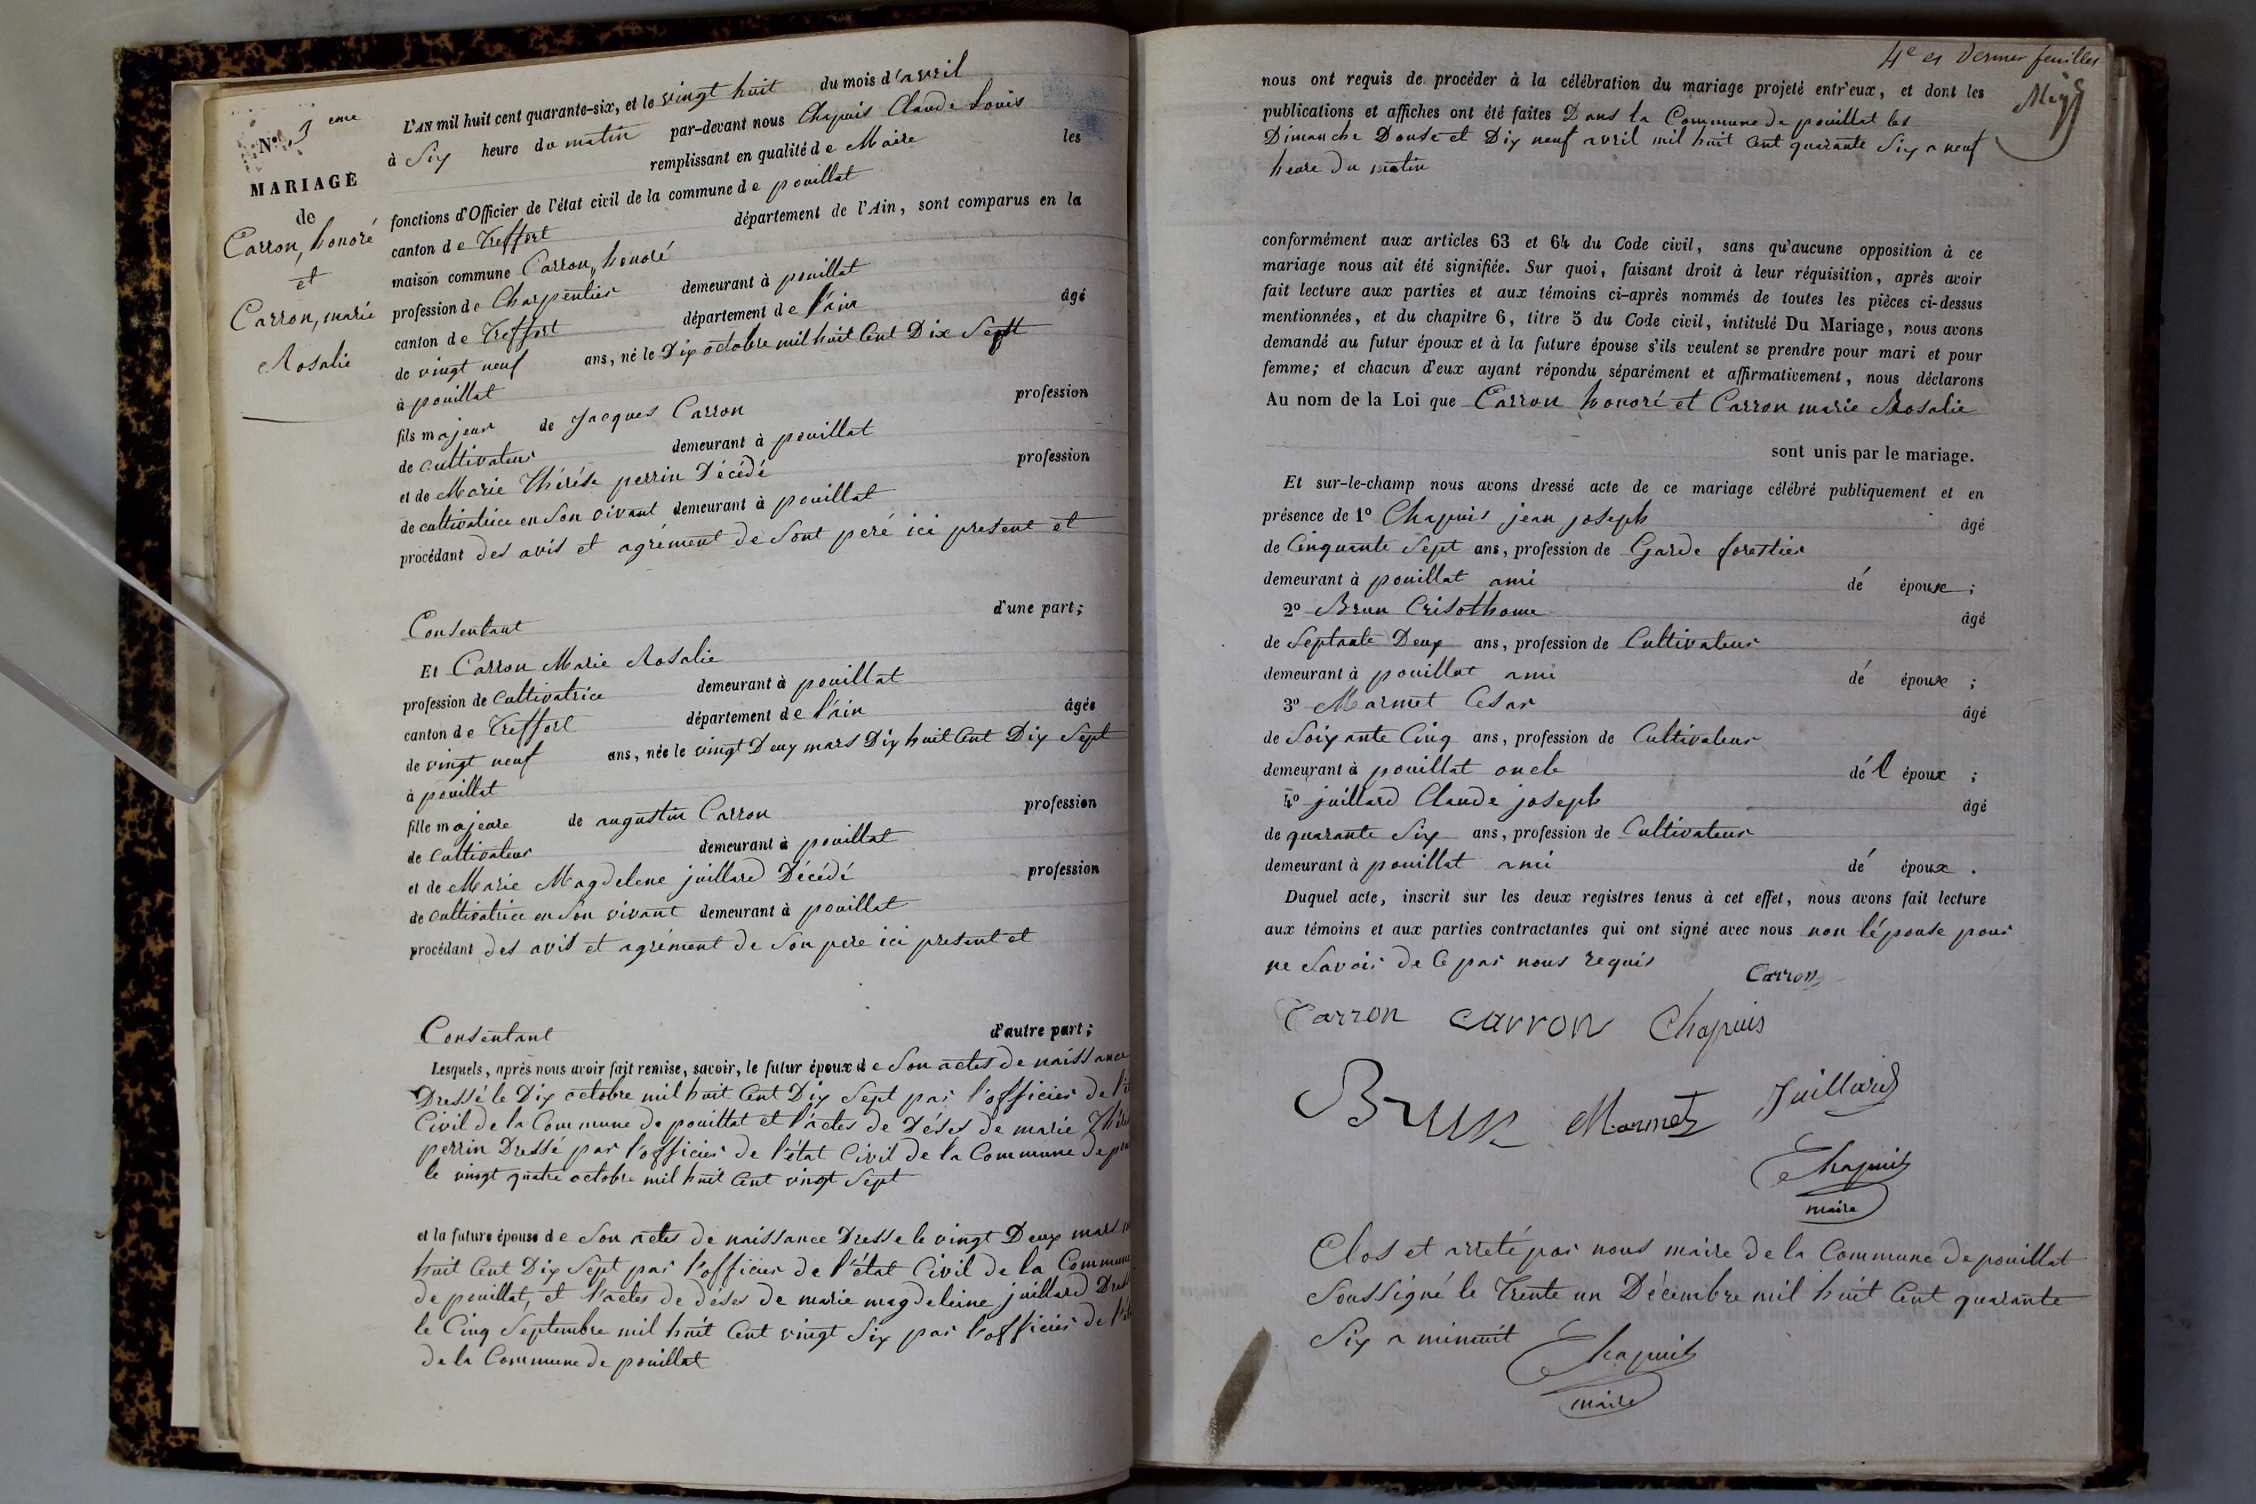 N.º 3 eme
MARIAGE
de
Carron, honoré
et
Carron, marie
Rosalie
L'AN mil huit cent quarante-six, et le vingt huit du mois d'avril
à Six heure du matin par-devant nous Chapuis Claude Louis
remplissant en qualité de Maire les
fonctions d'Officier de l'état civil de la commune de pouillat
canton de Treffort département de l'Ain, sont comparus en la
maison commune Carron, honoré
profession de Charpentier demeurant à pouillat
canton de Treffort département de l'ain âgé
de vingt neuf ans, né le Dix octobre mil huit Cent Dix Sept
à pouillat
fils majeur de Jacques Carron profession
de cultivateur demeurant à pouillat
et de Marie Thérése perrin Décédé profession
de cultivatrice en Son vivant demeurant à pouillat
procédant des avis et agrément de Sont peré ici present et
Consentant d'une part;
Et Carron Marie Rosalie
profession de cultivatrice demeurant à pouillat
canton de Treffort département de l'ain âgée
de vingt neuf ans, née le vingt Deux mars Dix huit Cent Dix Sept
à pouillat
fille majeure de augustin Carron profession
de cultivateur demeurant à pouillat
et de Marie Magdelene juillard Décédé profession
de cultivatrice en Son vivant demeurant à pouillat
procédant des avis et agrément de Son pere ici present et
Consentant d'autre part;
Lesquels, après nous avoir fait remise, savoir, le futur époux de Son actes de naissance
Dressé le Dix octobre mil huit Cent Dix Sept par l'officier de l'
Civil de la Commune de pouillat et l'actes de Déses de marie
perrin Dressé par l'officier de l'état Civil de la Commune de
le vingt quatre octobre mil huit Cent vingt Sept
et la future épouse de Son actes de naissance Dresse le vingt Deux mars
huit Cent Dix Sept par l'officier de l'état Civil de la Commune
de pouillat, et l'actes de déses de marie magdeleine juillard
le Cinq Septembre mil huit Cent vingt Six par l'officier de
de la Commune de pouillat
4e et Dernier feuilles
nous ont requis de procéder à la célébration du mariage projeté entr'eux, et dont les
publications et affiches ont été faites Dans la Commune de pouillat les
Dimanche Douse et Dix neuf avril mil huit Cent quarante Six a neuf
heure du matin
conformément aux articles 63 et 64 du Code civil, sans qu'aucune opposition à ce
mariage nous ait été signifiée. Sur quoi, faisant droit à leur réquisition, après avoir
fait lecture aux parties et aux témoins ci-après nommés de toutes les pièces ci-dessus
mentionnées, et du chapitre 6, titre 5 du Code civil, intitulé Du Mariage, nous avons
demandé au futur époux et à la future épouse s'ils veulent se prendre pour mari et pour
femme; et chacun d'eux ayant répondu séparément et affirmativement, nous déclarons
Au nom de la Loi que Carron honoré et Carron marie Rosalie
sont unis par le mariage.
Et sur-le-champ nous avons dressé acte de ce mariage célébré publiquement et en
présence de 1º Chapuis jean joseph âgé
de Cinquante Sept ans, profession de Garde forestier
demeurant à pouillat ami dé époux ;
2º Brun Crisothome âgé
de Septante Deux ans, profession de Cultivateur
demeurant à pouillat ami dé époux ;
3º Marmet César âgé
de Soixante Cinq ans, profession de Cultivateur
demeurant à pouillat oncle dé l époux ;
4º juillard Claude joseph âgé
de quarante Six ans, profession de Cultivateur
demeurant à pouillat ami dé époux .
Duquel acte, inscrit sur les deux registres tenus à cet effet, nous avons fait lecture
aux témoins et aux parties contractantes qui ont signé avec nous non l'épouse pour
ne Savoir de Ce par nous requis
Carron
Carron Carron Chapuis
Brun Marmet Juillard
Chapuis
maire
Clos et arreté par nous maire de la Commune de pouillat
Soussigné le Trente un Décembre mil huit Cent quarante
Six a minuit
Chapuis
maire